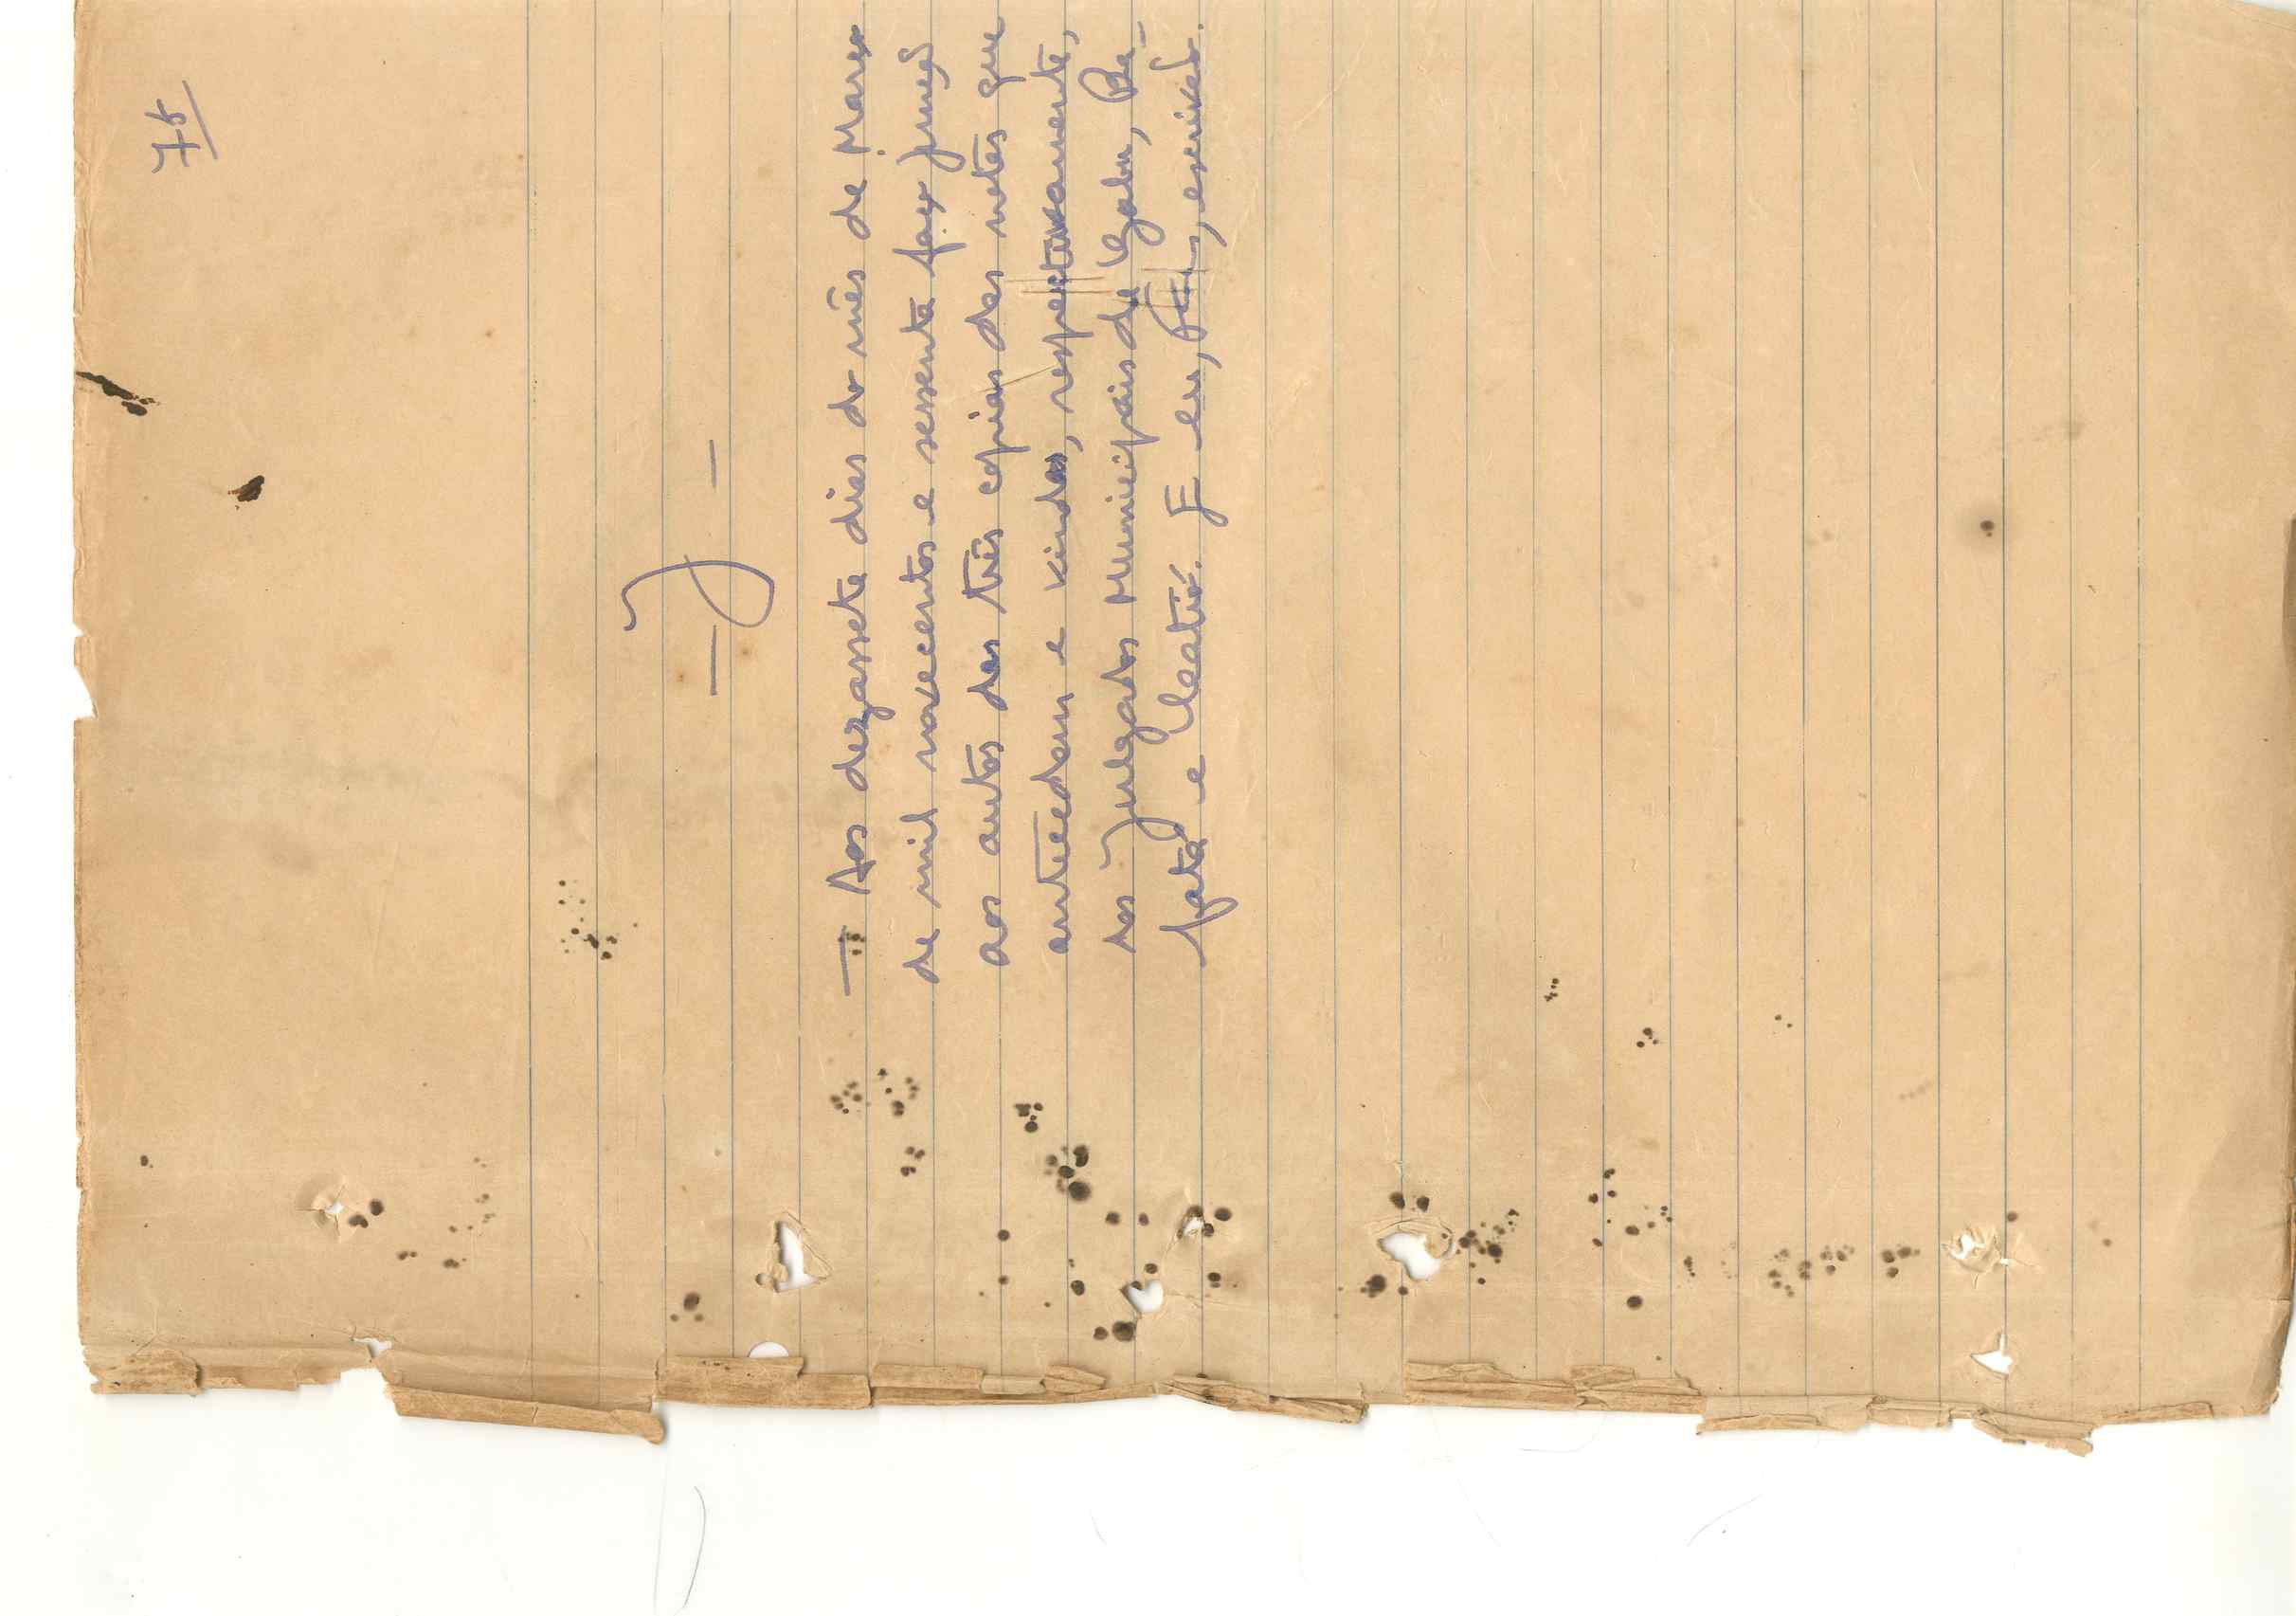 74
— J —
— Aos dezassete dias do mês de Março
de mil novecentos e sessenta faço junção
aos autos das três copias das notas que
antecedem e vindas, respectivamente,
dos Julgados Municipais de Gabu, Ba-
fatá e Catió. E eu, escrivão.